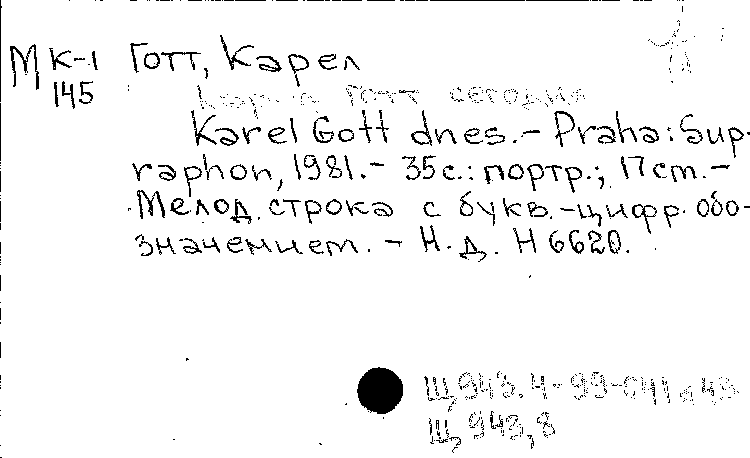 М К-1 Готт, Карел
145
Карел Готт сегодня
Karel Gott dnes.- Praha: Sup-
raphon, 1981.- 35 с.: портр.; 17 cm.-
Мелод. строка с букв.-цифр. обо-
значением. - Н.д. Н 6620.
Щ943.4-99-641 я 43
Щ 943,8